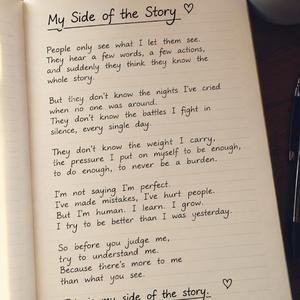 My Side of the Story ♡
People only see what I let them see.
They hear a few words, a few actions,
and suddenly they think they know the
whole story.
But they don't know the nights I've cried
when no one was around.
They don't know the battles I fight in
silence, every single day.
They don't know the weight I carry,
the pressure I put on myself to be enough,
to do enough, to never be a burden.
I'm not saying I'm perfect.
I've made mistakes, I've hurt people.
But I'm human. I learn. I grow.
I try to be better than I was yesterday.
So before you judge me,
try to understand me.
Because there's more to me
than what you see.
is my side of the story. ♡